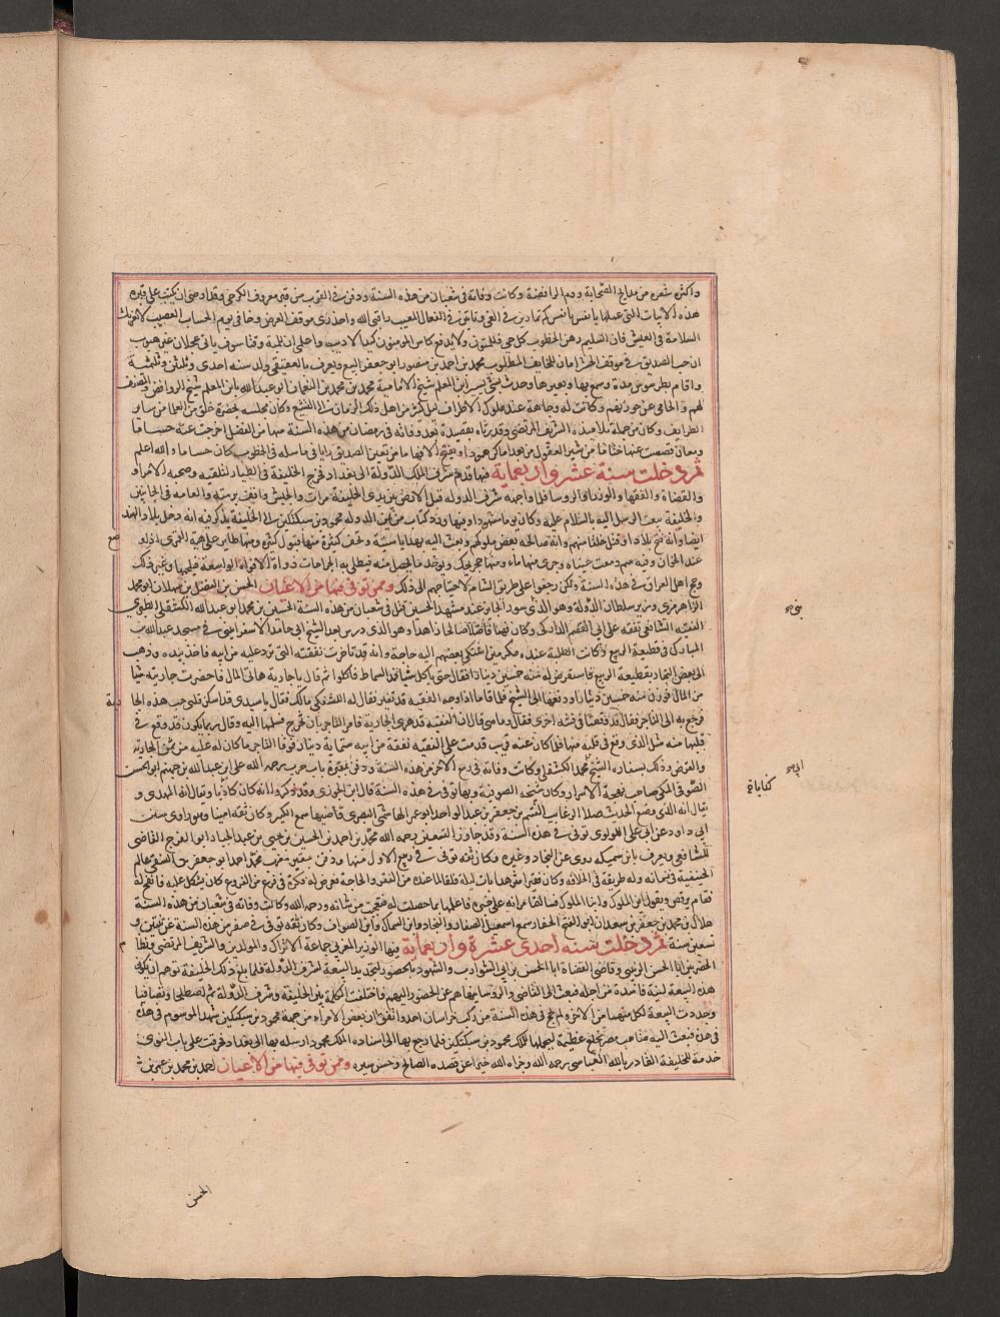 واكثر شعره من مدايح الصحابة وذم الرافضة وكانت وفاته فى شعبان من هذه السنة ودفن فى القرب من قبر معروف الكرخى وقد اوصى ان يكتب على قبره
هذه الابيات التى عملها يا نفس يا نفس كم تمادين فى الغى وفى الفعال المعيب راقبى الله واحذرى موقف العرض وخافى يوم الحساب العصيب لا تغرنك
السلامة فى العيش فان السليم رهن الخطوب كل حى فللمنون ولا يدفع كاس المنون كيد الاديب واعلمى ان للمنية وقتا سوف ياتى عجلان غير هيوب
ان حب الصديق فى موقف الحشر امان للخايف المطلوب محمد بن احمد بن منصور ابو جعفر البيع ويعرف بالعتيقى ولد سنة احدى وثلثين وثلثمية
واقام بطرسوس مدة وسمع بها وبغيرها وحدث بشى يسير ابن المعلم شيخ الامامية محمد بن محمد بن النعمان ابو عبد الله بابن المعلم شيخ الروافض والمصنف
لهم والحامى عن حوزتهم وكانت له وجاهة عند ملوك الاطراف لميل كثير من اهل ذلك الزمان الى التشيع وكان مجلسه يحضره خلق من العلما من ساير
الطوايف وكان من جملة تلامذته الشريف المرتضى وقد رثاه بقصيدة بعد وفاته فى رمضان من هذه السنة منها من لفضل اخرجت منه حساما
ومعان فضضت عنها ختاما من يثير العقول من بعد ما كن همودا ويفتح الافهاما من يعير الصديق رايا فى ما سله فى الخطوب كان حساما والله اعلم
ثم دخلت سنة عشر واربعماية فيها قدم شرف الملك الدولة الى بغداد فخرج الخليفة فى الطيار لتلقيه وصحبه الامراء
والقضاة والفقها والوزرا والروسا فلما واجهه شرف الدولة قبل الارض بين يدى الخليفة مرات والجيش واقف برمته والعامة فى الجانبين
والخليفة يبعث الرسل اليه بالسلام عليه وكان يوما مشهودا وفيها ورد كتاب من يمين الدوله محمود بن سبكتكين الى الخليفة يذكر فيه انه دخل بلاد الهند
ايضا وانه فتح بلادا وقتل خلقا منهم وانه صالحه بعض ملوكهم وبعث اليه بهدايا سنية وتحف كثيرة منها فيول كثيرة ومنها طاير على هية القمرى اذا
عند الخوان وفيه سم دمعت عيناه وجرى منها ماء ومنها حجر يحك ويوخذ ما يحصل منه فيطلى به الجراحات ذوات الافواه الواسعة فيلحمها وغير ذلك
وحج اهل العراق فى هذه السنة ولكن رجعوا على طريق الشام لاحتياجهم الى ذلك وممن توفى فيها من الاعيان الحسن بن الفضل بن سهلان ابو محمد
الرامهرمزى وزير سلطان الدولة وهو الذى سور الحاير عند مشهد الحسين قتل فى شعبان من هذه السنة الحسين بن محمد ابو عبد الله الكشفلى الطبرى
الفقيه الشافعى تفقه على ابى القسم الداركى وكان فهما فاضلا صالحا زاهدا وهو الذى درس بعد الشيخ ابى حامد الاسفراينى فى مسجد عبد الله بن
المبارك فى قطيعة الربيع وكانت الطلبة عنده مكرمين اشتكى بعضهم اليه حاجة وانه قد تاخرت نفقته التى ترد عليه من ابيه فاخذ بيده وذهب
الى بعض التجار بقطيعة الربيع فاستقرض له منه خمسين دينارا فقال حتى ياكل شيا فمد السماط فاكلوا ثم قال يا جارية هاتى المال فاحضرت جاريته شيا
من المال فوزن منه خمسين دينارا ودفعها الى الشيخ فلما قاما اذا وجه الفقيه قد تغير فقال له الكشفلى مالك فقال يا سيدى قد اسكن قلبى حب هذه الجارية
فرجع به الى التاجر فقال قد وقعنا فى فتنة اخرى فقال وما هى قال ان الفقيه قد هوى الجارية فامر التاجر بان تخرج فسلمها اليه وقال ربما يكون قد وقع فى
قلبها منه مثل الذى وقع فى قلبه منها فلما كان عنه قريب قدمت على الفقيه نفقة من ابيه ستماية دينار فوفا التاجر ما كان له عليه من ثمن الجاريه
والقرض وذلك بسفارة الشيخ محمد الكشفلى وكانت وفاته فى ربيع الاخر من هذه السنة ودفن بمقبرة باب حرب رحمه الله على بن عبد الله بن جهضم ابو الحسن
الصوفى المكى صاحب بهجة الاسرار وكان شيخ الصوفية وبها توفى فى هذه السنة قال ابن الجوزى وقد ذكروا انه كان كاذبا ويقال انه
يقال انه الذى وضع الحديث صلاة الرغايب القسم بن جعفر بن عبد الواحد ابو عمر الهاشمى البصرى قاضيها سمع الكثير وكان ثقة امينا وهو راوى سنن
ابى داود عن ابى على اللولوى توفى فى هذه السنة وقد جاوز التسعين رحمه الله محمد بن احمد بن الحسين بن يحيى بن عبد الجبار ابو الفرج القاضى
الشافعى ويعرف بابن سميكة روى عن النجاد وغيره وكان ثقة توفى فى ربيع الاول منها ودفن بمقبرة حرب محمد بن احمد ابو جعفر النسفى عالم
الحنفية فى زمانه وله طريقة فى الخلاف وكان فقيرا متزهدا بات ليلة قلقا لما عنده من الفقر والحاجة فعرض له فكرة فى فرع من الفروع كان يشكل عليه فانفتح له
فقام يرقص ويقول اين الملوك وابنا الملوك فسالته امراته عن خبره فاعلمها بما حصلت له فتعجبت من شانه رحمه الله وكانت وفاته فى شعبان من هذه السنة
هلال بن محمد بن جعفر بن سعدان ابو الفتح الحفار سمع اسمعيل الصفار والنجاد وابن السماك وابن الصواف وكان ثقة توفى فى صفر من هذه السنة عن ثنتين و
تسعين سنة ثم دخلت سنه احدى عشرة واربعماية فيها الوزير المغربى جماعة الاتراك والمولدين والشريف المرتضى ونظام
الحضرتين ابا الحسن الزينبى وقاضى القضاة ابا الحسن بن ابى الشوارب والشهود بالحضور لتجديد البيعة لشرف الدولة فلما بلغ ذلك الخليفة توهم ان تكون
هذه البيعة لنية فاسدة من اجله فبعث الى القاضى والروسا ينهاهم عن الحضور اليهم فاختلفت الكلمة بين الخليفة وشرف الدولة ثم اصطلحا وتصافيا
وجددت البيعة لكل منهما من الاخر ولم يحج فى هذه السنة من ركب خراسان احد واتفق ان بعض الامراء من جهة محمود بن سبكتكين شهد الموسم فى هذه
فى هذه فبعث اليه صاحب مصر بخلع عظيمة ليحملها للملك محمود بن سبكتكين فلما رجع بها الى استاده الملك محمود ارسله بها الى بغداد فحرقت على باب النوبى
خدمة للخليفة القادر بالله العباسى رحمه الله وجزاه الله خيرا عن قصده الصالح وحسن سيره وممن توفى فيها من الاعيان احمد بن محمد بن عمر بن
الحسن